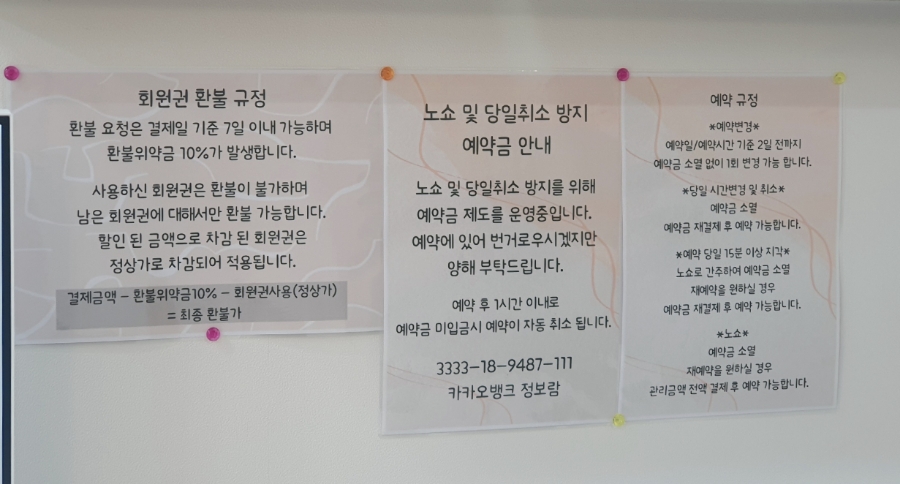 회원권 환불 규정
환불 요청은 결제일 기준 7일 이내 가능하며
환불위약금 10%가 발생합니다.
사용하신 회원권은 환불이 불가하며
남은 회원권에 대해서만 환불 가능합니다.
할인 된 금액으로 차감 된 회원권은
정상가로 차감되어 적용됩니다.
결제금액 - 환불위약금10% - 회원권사용(정상가)
= 최종 환불가
노쇼 및 당일취소 방지
예약금 안내
노쇼 및 당일취소 방지를 위해
예약금 제도를 운영중입니다.
예약에 있어 번거로우시겠지만
양해 부탁드립니다.
예약 후 1시간 이내로
예약금 미입금시 예약이 자동 취소 됩니다.
3333-18-9487-111
카카오뱅크 정보람
예약 규정
*예약변경*
예약일/예약시간 기준 2일 전까지
예약금 소멸 없이 1회 변경 가능 합니다.
*당일 시간변경 및 취소*
예약금 소멸
예약금 재결제 후 예약 가능합니다.
*예약 당일 15분 이상 지각*
노쇼로 간주하여 예약금 소멸
재예약을 원하실 경우
예약금 재결제 후 예약 가능합니다.
*노쇼*
예약금 소멸
재예약을 원하실 경우
관리금액 전액 결제 후 예약 가능합니다.